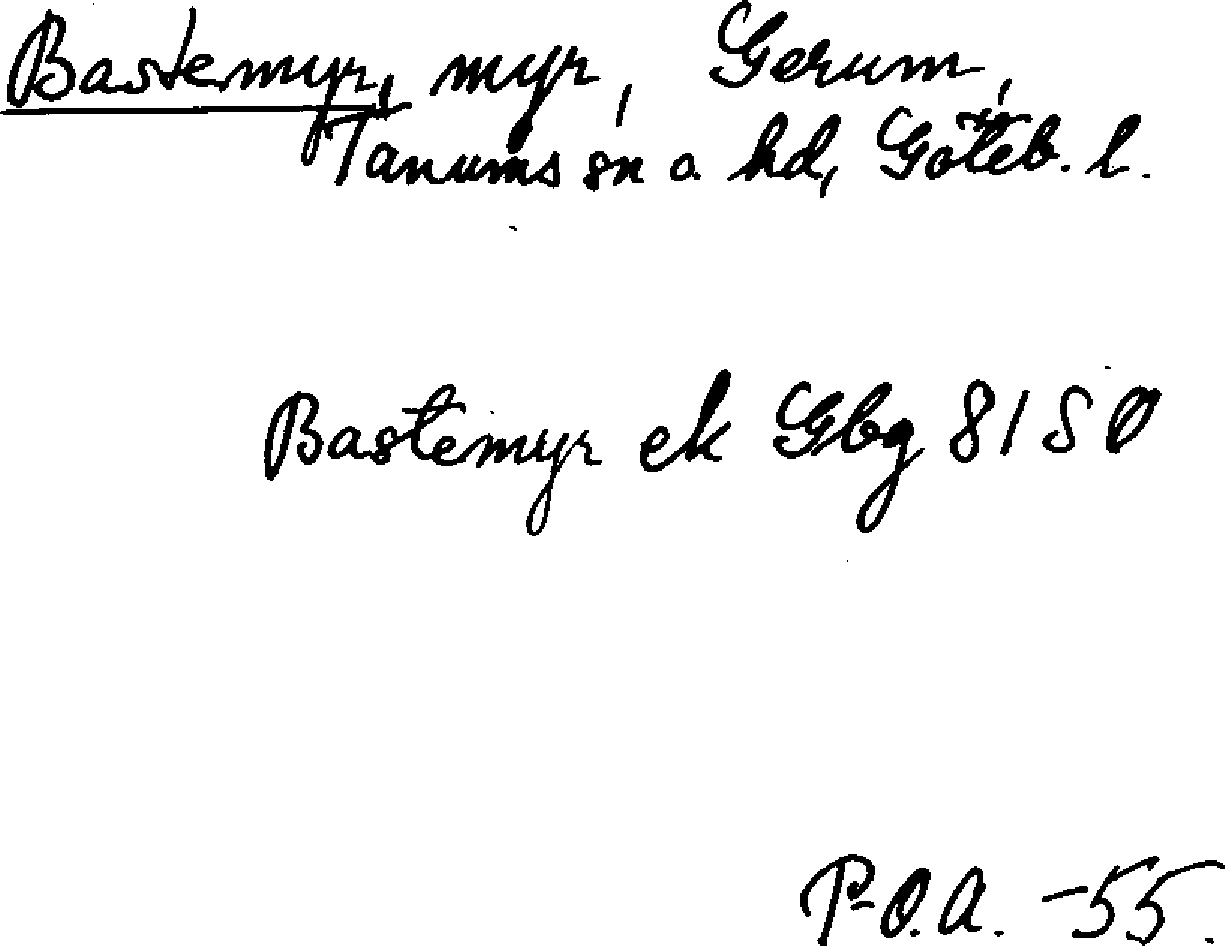 Bastemyr, myr, Gerum,
Tanums sn o. hd, Göteb. l.
Bastemyr ek Gbg 81 SO
P-O.A. -55.